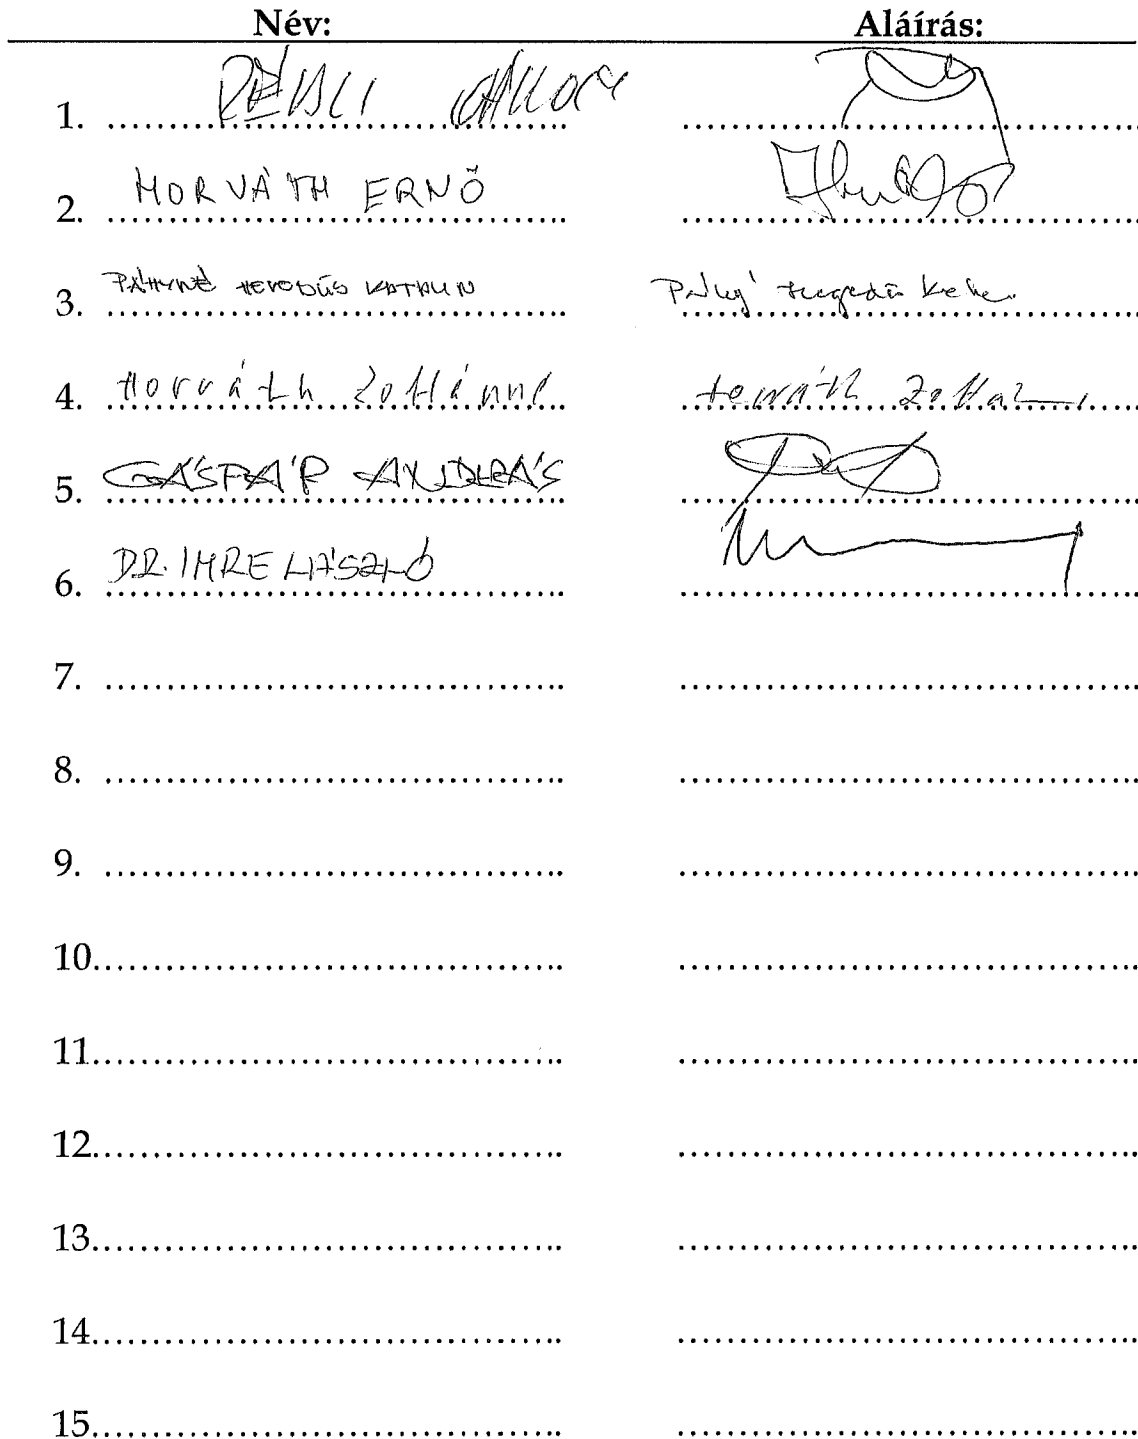 Név: Aláírás:
1.
2. HORVÁTH ERNŐ
3. PÁHYNÉ HEGEDŰS KATALIN
4. Horváth Zoltánné Horváth Zoltánné
5. GÁSPÁR ANDRÁS
6. DR. IMRE LÁSZLÓ
7.
8.
9.
10.
11.
12.
13.
14.
15.